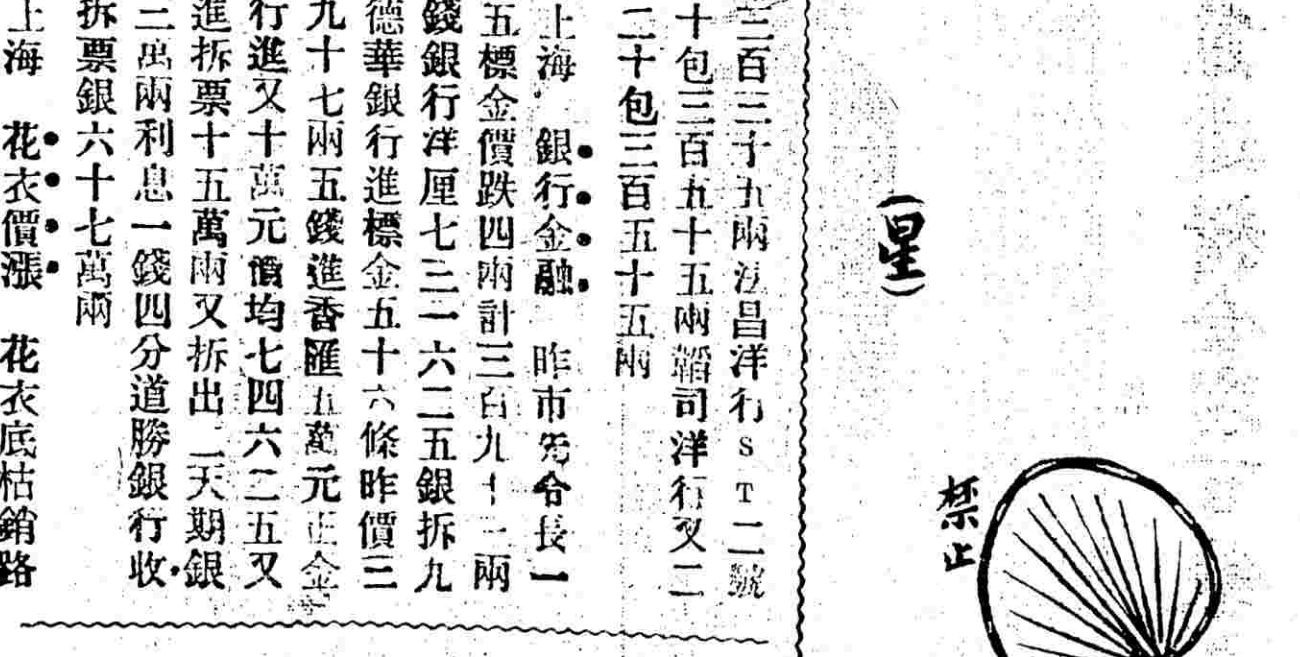 (星)
禁止
三百三十五兩法昌洋行ST二號
十包三百九十五兩韜司洋行又二
二十包三百五十五兩
上海 銀行金融 昨市先令長一
五標金價跌四兩計三百九十一兩
錢銀行洋厘七三一六二五銀拆九
德華銀行進標金五十六條昨價三
九十七兩五錢進香匯五萬元正金
行進又十萬元價均七四六二五又
進拆票十五萬兩又拆出二天期銀
二萬兩利息一錢四分道勝銀行收
拆票銀六十七萬兩
上海 花衣價漲 花衣底枯銷路